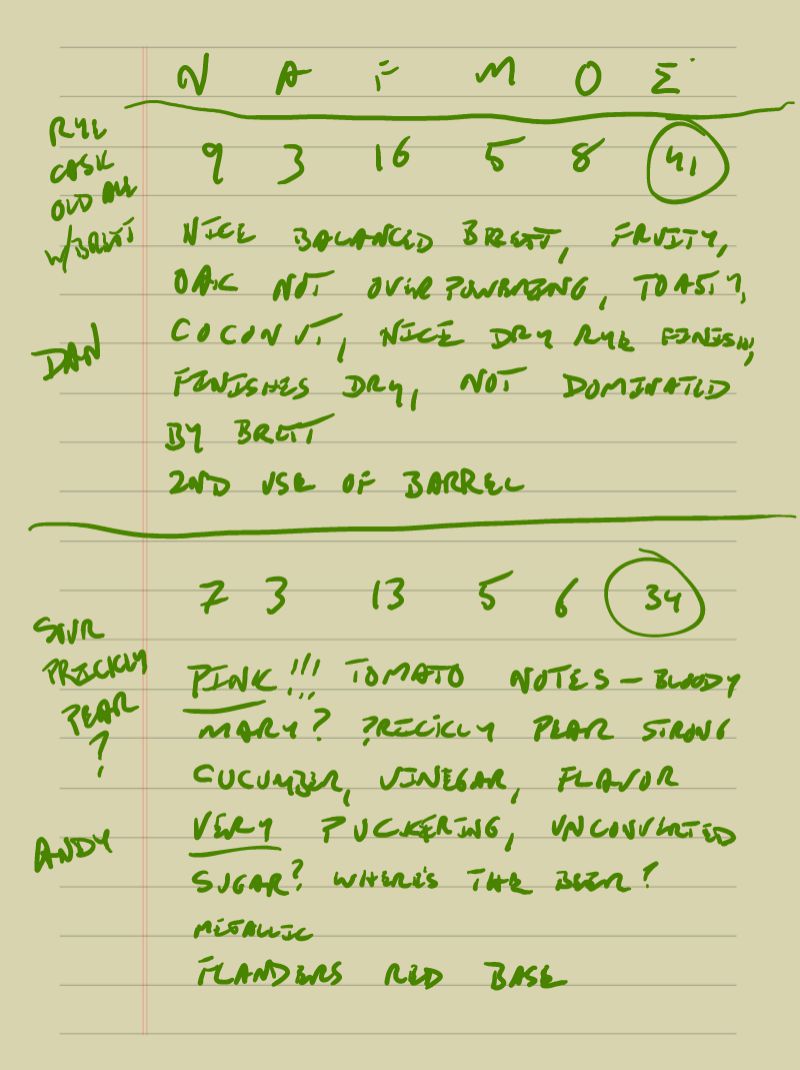 N A F M O Σ
RYE
CASK
OLD ALE
W/BRETT
9 3 16 5 8 41
NICE BALANCED BRETT, FRUITY,
OAK NOT OVERPOWERING, TOASTY,
COCONUT, NICE DRY RYE FINISH,
DAN
FINISHES DRY, NOT DOMINATED
BY BRETT
2ND USE OF BARREL
7 3 13 5 6 34
SOUR
PRICKLY
PEAR
?
PINK!!! TOMATO NOTES - BLOODY
MARY? PRICKLY PEAR STRONG
CUCUMBER, VINEGAR, FLAVOR
ANDY
VERY PUCKERING, UNCONVERTED
SUGAR? WHERE'S THE BEER?
METALLIC
FLANDERS RED BASE